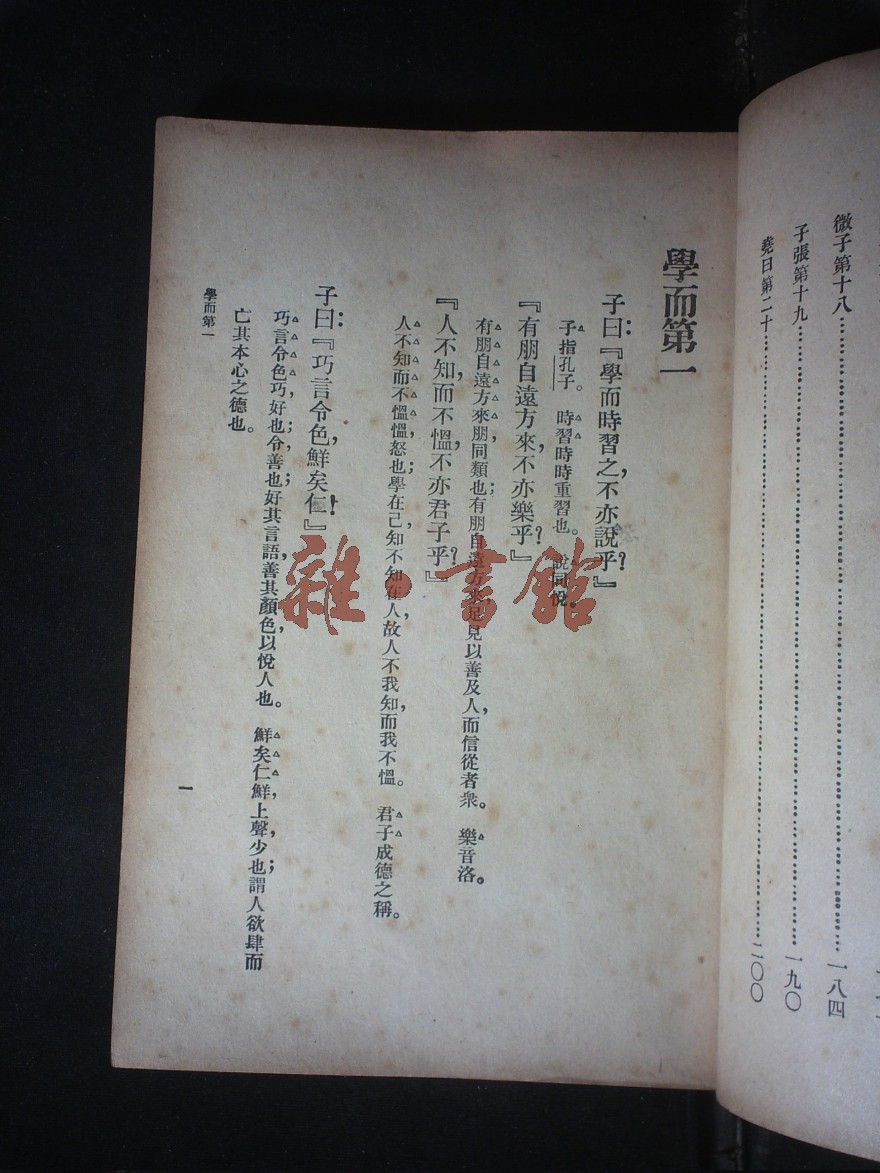 微子第十八……一八四
子張第十九……一九〇
堯曰第二十……二〇〇
學而第一
子曰：『學而時習之，不亦說乎？』
子指孔子。　時習時時重習也。　說同悅。
『有朋自遠方來，不亦樂乎？』
有朋自遠方來，朋同類也；有朋自遠方來足見以善及人，而信從者衆。　樂音洛。
『人不知，而不慍，不亦君子乎？』
人不知而不慍，慍怒也；學在己知不知在人，故人不我知，而我不慍。　君子成德之稱。
子曰：『巧言令色，鮮矣仁！』
巧言令色，巧，好也；令善也；好其言語，善其顏色，以悅人也。　鮮矣仁，鮮上聲，少也；謂人欲肆而
亡其本心之德也。
學而第一
一
雜·書館